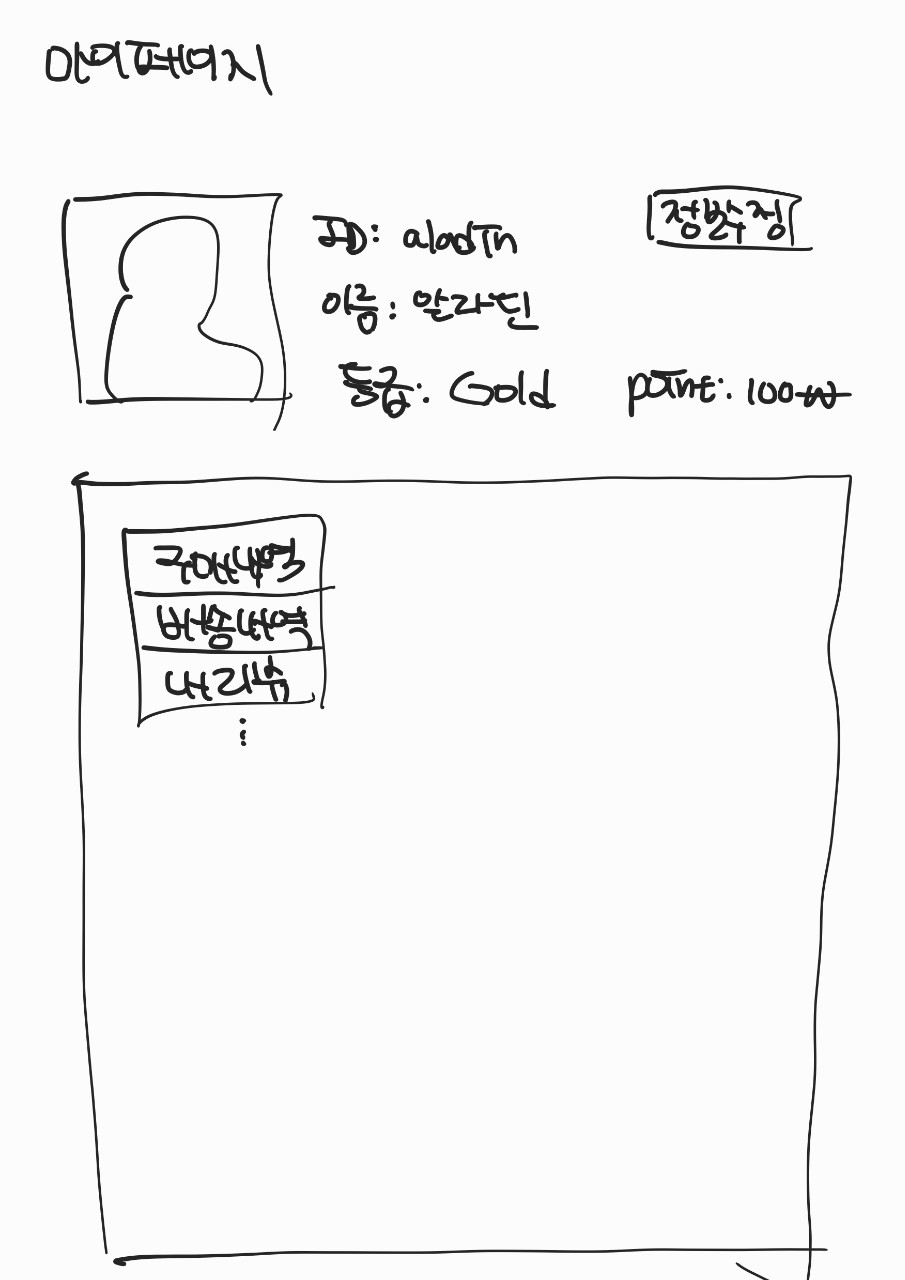 마이페이지
ID: aladin
정보수정
이름: 알라딘
등급: Gold
point: 100₩
구매내역
배송내역
내 리뷰
⋮